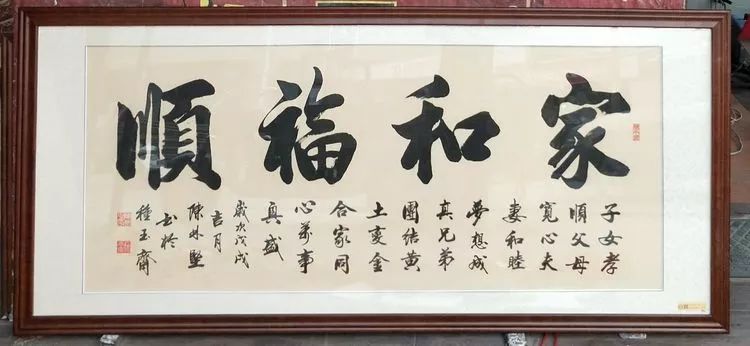 家和福順
子女孝
順父母
寬心夫
妻和睦
夢想成
真兄弟
團結黃
土变金
合家同
心萬事
興盛
歲次戊戌
吉月
陳林堅
书於
種玉齋